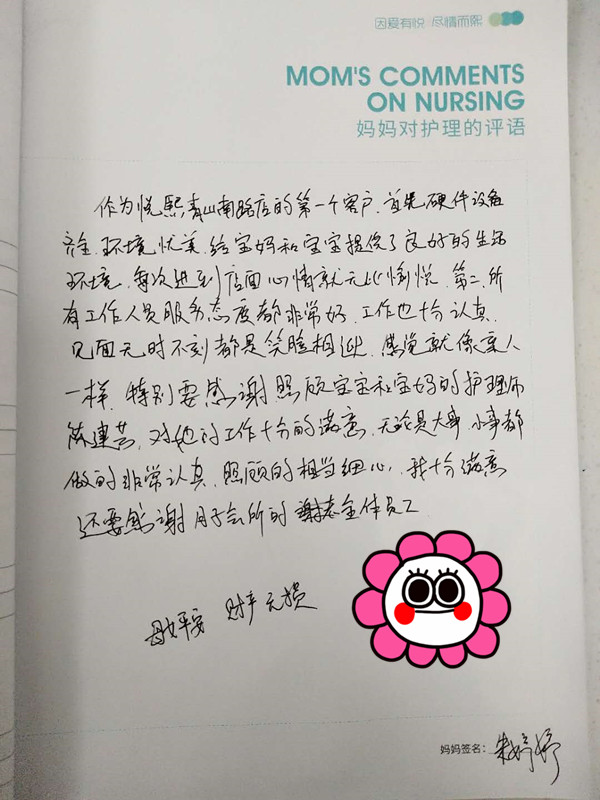 因爱有悦 尽情而熙
MOM'S COMMENTS
ON NURSING
妈妈对护理的评语
作为悦熙青山南路店的第一个客户，首先硬件设备
齐全，环境优美，给宝妈和宝宝提供了良好的生活
环境，每次进到店面心情就无比愉悦，第二，所
有工作人员服务态度都非常好，工作也十分认真，
见面无时不刻都是笑脸相迎，感觉就像亲人
一样，特别要感谢照顾宝宝和宝妈的护理师
陈建芳，对她的工作十分的满意，无论是大事小事都
做的非常认真，照顾的相当细心，我十分满意
还要感谢月子会所的全体员工
母女平安 财产无损
妈妈签名：朱婷婷